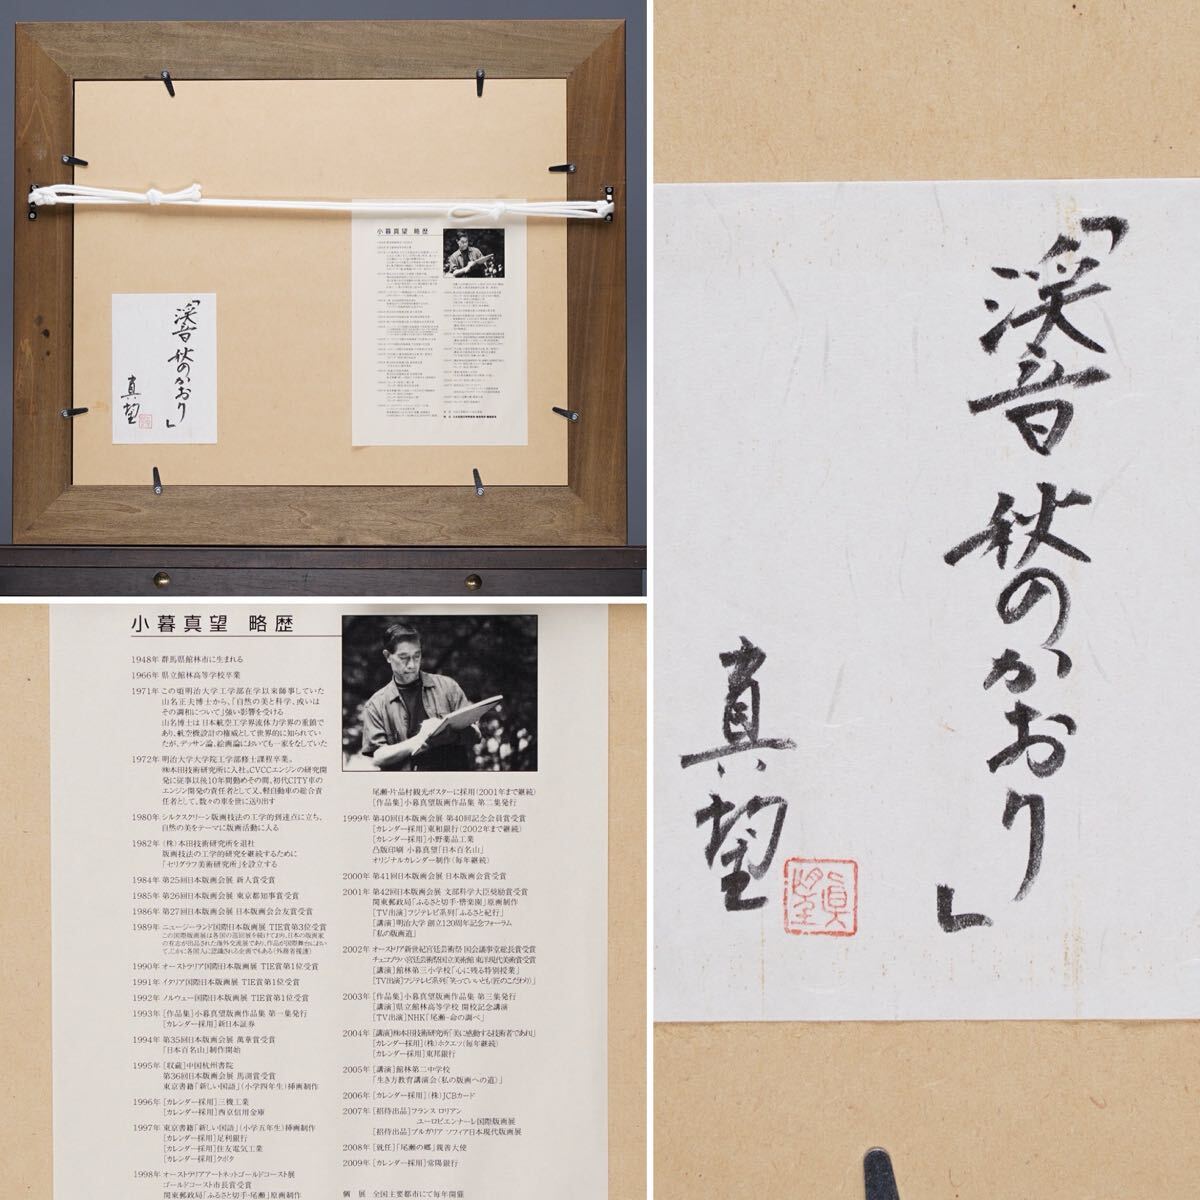 「渓音 秋のかおり」
真望
眞望
小暮真望 略歴
1948年 群馬県館林市に生まれる
1966年 県立館林高等学校卒業
1971年 この頃明治大学工学部在学以来師事していた
山名正夫博士から、「自然の美と科学、或いは
その調和について」強い影響を受ける
山名博士は日本航空工学界流体力学界の重鎮で
あり、航空機設計の権威として世界的に知られてい
たが、デッサン論、絵画論においても一家をなしていた
1972年 明治大学大学院工学部修士課程卒業。
㈱本田技術研究所に入社。CVCCエンジンの研究開
発に従事以後10年間勤めその間、初代CITY車の
エンジン開発の責任者として又、軽自動車の総合責
任者として、数々の車を世に送り出す
1980年 シルクスクリーン版画技法の工学的到達点に立ち、
自然の美をテーマに版画活動に入る
1982年 (株)本田技術研究所を退社
版画技法の工学的研究を継続するために
「セリグラフ美術研究所」を設立する
1984年 第25回日本版画会展 新人賞受賞
1985年 第26回日本版画会展 東京都知事賞受賞
1986年 第27回日本版画会展 日本版画会会友賞受賞
1989年 ニュージーランド国際日本版画展 TIE賞第3位受賞
この国際版画展は各国の巡回展を続けており、日本の版画家
の有志が出品された海外交流展であり、作品が国際舞台におい
て、じかに各国人に認識される企画でもある(外務省後援)
1990年 オーストラリア国際日本版画展 TIE賞第1位受賞
1991年 イタリア国際日本版画展 TIE賞第1位受賞
1992年 ノルウェー国際日本版画展 TIE賞第1位受賞
1993年 [作品集]小暮真望版画作品集 第一集発行
[カレンダー採用]新日本証券
1994年 第35回日本版画会展 萬章賞受賞
「日本百名山」制作開始
1995年 [収蔵]中国杭州書院
第36回日本版画会展 馬渕賞受賞
東京書籍「新しい国語」(小学四年生)挿画制作
1996年 [カレンダー採用]三機工業
[カレンダー採用]西京信用金庫
1997年 東京書籍「新しい国語」(小学五年生)挿画制作
[カレンダー採用]足利銀行
[カレンダー採用]住友電気工業
[カレンダー採用]クボタ
1998年 オーストラリアアートネットゴールドコースト展
ゴールドコースト市長賞受賞
関東郵政局「ふるさと切手・尾瀬」原画制作
尾瀬・片品村観光ポスターに採用(2001年まで継続)
[作品集]小暮真望版画作品集 第二集発行
1999年 第40回日本版画会展 第40回記念会員賞受賞
[カレンダー採用]東和銀行(2002年まで継続)
[カレンダー採用]小野薬品工業
凸版印刷 小暮真望「日本百名山」
オリジナルカレンダー制作(毎年継続)
2000年 第41回日本版画会展 日本版画会賞受賞
2001年 第42回日本版画会展 文部科学大臣奨励賞受賞
関東郵政局「ふるさと切手・偕楽園」原画制作
[TV出演]フジテレビ系列「ふるさと紀行」
[講演]明治大学 創立120周年記念フォーラム
「私の版画道」
2002年 オーストリア新世紀宮廷芸術祭 国会議事堂総長賞受賞
チェコプラハ宮廷芸術祭国立美術館 東洋現代美術賞受賞
[講演]館林第三小学校「心に残る特別授業」
[TV出演]フジテレビ系列「笑っていいとも(匠のこだわり)」
2003年 [作品集]小暮真望版画作品集 第三集発行
[講演]県立館林高等学校 開校記念講演
[TV出演]NHK「尾瀬-命の調べ」
2004年 [講演]㈱本田技術研究所「美に感動する技術者であれ」
[カレンダー採用](株)ホクエツ(毎年継続)
[カレンダー採用]東邦銀行
2005年 [講演]館林第二中学校
「生き方教育講演会(私の版画への道)」
2006年 [カレンダー採用](株)JCBカード
2007年 [招待出品]フランス ロリアン
ユーロビエンナーレ国際版画展
[招待出品]ブルガリア ソフィア日本現代版画展
2008年 [就任]「尾瀬の郷」親善大使
2009年 [カレンダー採用]常陽銀行
個 展 全国主要都市にて毎年開催
「渓音 秋のかおり」
真望
小暮真望 略歴